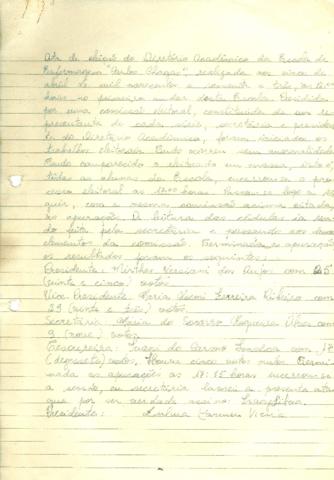 Ata de eleição do Diretório Acadêmico da Escola de
Enfermagem "Carlos Chagas", realizada aos cinco de
abril de mil novecentos e sessenta e três, às
horas no primeiro andar desta Escola. Presidida
por uma comissão eleitoral, constituída de um re-
presentante de cada série, secretária e presiden-
te do Diretório Acadêmico, foram iniciados os
trabalhos eleitorais. Tudo correu sem anormalidade.
Tendo comparecido o eleitorado em massa, isto é,
todas as alunas da Escola, encerrou-se o pro-
cesso eleitoral às 17:00 horas. Passou-se logo a se-
guir, com a mesma comissão acima citada,
às apurações. A leitura das cédulas ia sen-
do feita pela secretária e passando aos demais
elementos da comissão. Terminada a apuração
os resultados foram os seguintes:
Presidente: Versiani dos Anjos com 25
(vinte e cinco) votos.
Vice-Presidente: Maria Noemi Ferreira Ribeiro com
23 (vinte e três) votos.
Secretária: Maria do Rosário Nogueira com
9 (nove) votos.
Tesoureira: do Carmo Fonseca com 17
(dezessete) votos. Houve cinco votos nulos. Termi-
nada as apurações às 17:15 horas encerrou-se
a sessão, eu secretária lavrei a presente ata
que por ser verdade assino:
Presidente: Vieira